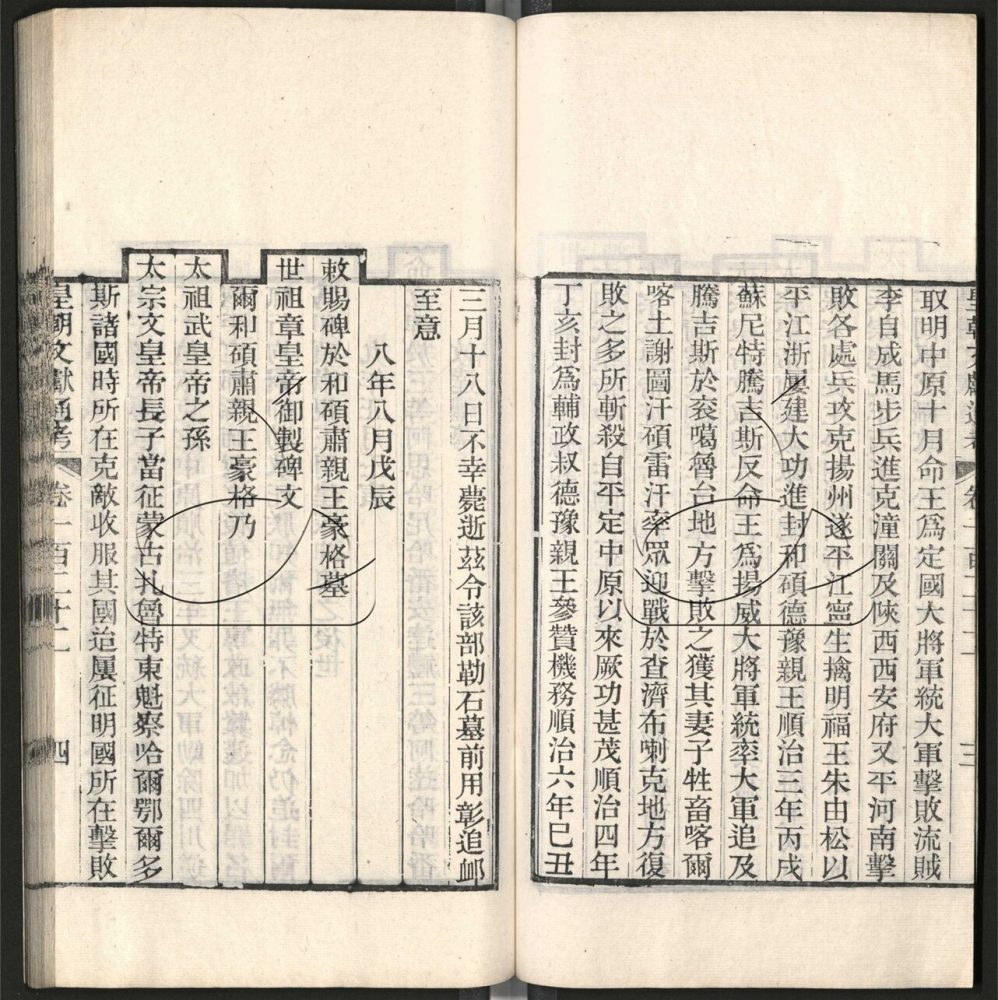 取明中原十月命王爲定國大將軍統大軍擊敗流賊
李自成馬步兵進克潼關及陜西西安府又平河南擊
敗各處兵攻克揚州遂平江寧生擒明福王朱由松以
平江浙屢建大功進封和碩德豫親王順治三年丙戌
蘇尼特騰吉斯反命王爲揚威大將軍統率大軍追及
騰吉斯於袞噶魯台地方擊敗之獲其妻子牲畜喀爾
喀土謝圖汗碩雷汗率眾迎戰於查濟布喇克地方復
敗之多所斬殺自平定中原以來厥功甚茂順治四年
丁亥封爲輔政叔德豫親王參贊機務順治六年巳丑
三月十八日不幸薨逝茲令該部勒石墓前用彰追䘏
至意
八年八月戊辰
敕賜碑於和碩肅親王豪格墓
世祖章皇帝御製碑文
爾和碩肅親王豪格乃
太祖武皇帝之孫
太宗文皇帝長子當征蒙古扎魯特東魁察哈爾鄂爾多
斯諸國時所在克敵收服其國迨屢征明國所在擊敗
皇朝文獻通考 卷一百二十二 四